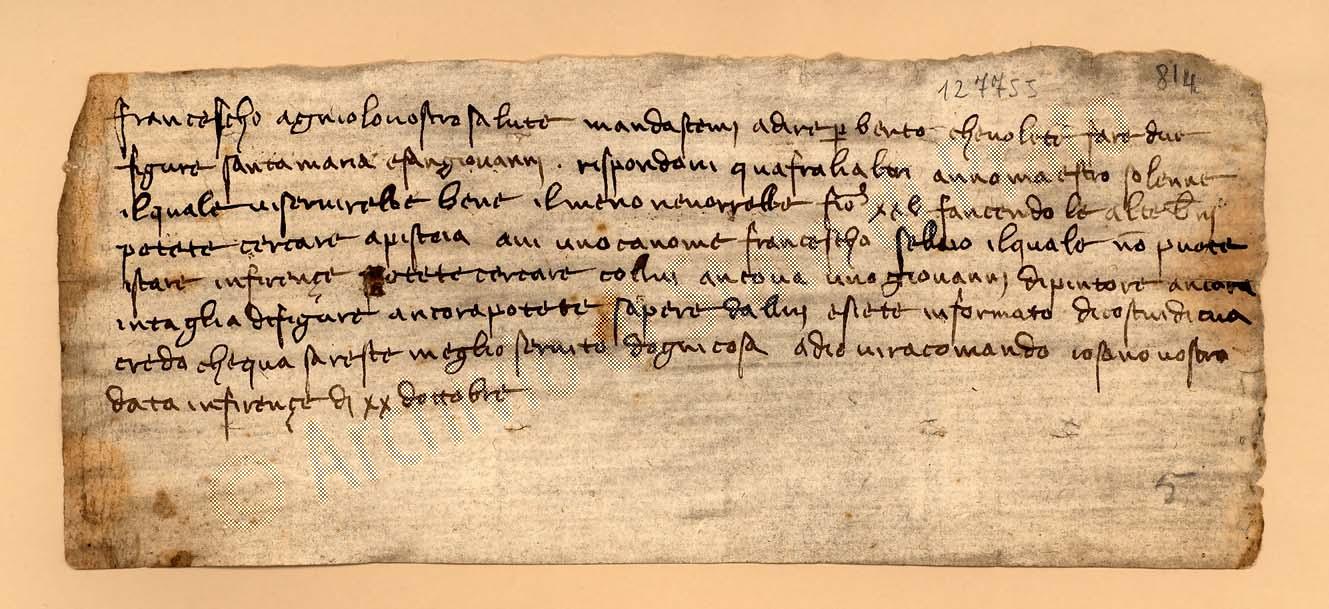 127755 814
francescho agniolo vostro salute mandastemi a dire per berto che volete fare due
figure santa maria e san giovanni . rispondovi qua fra li altri anno maestro solenne
il quale vi servirebbe bene il meno ne vorrebbe fior xxv faccendo le alte
potete cercare a pistoia avi uno ca nome francescho il quale nō puote
istare in firençe potete cercare collui ancora uno giovanni dipintore ancora
intaglia di figure ancora potete sapere dallui e siete informato di costui di cua
credo che qua sareste meglio servito dogni cosa a dio vi racomando io sono vostro
data in firençe dj xx dottobre
5
© Archivio